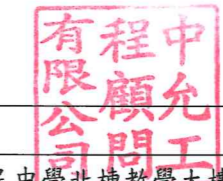 中允工
程顧問
有限公司
中學北棟教學大